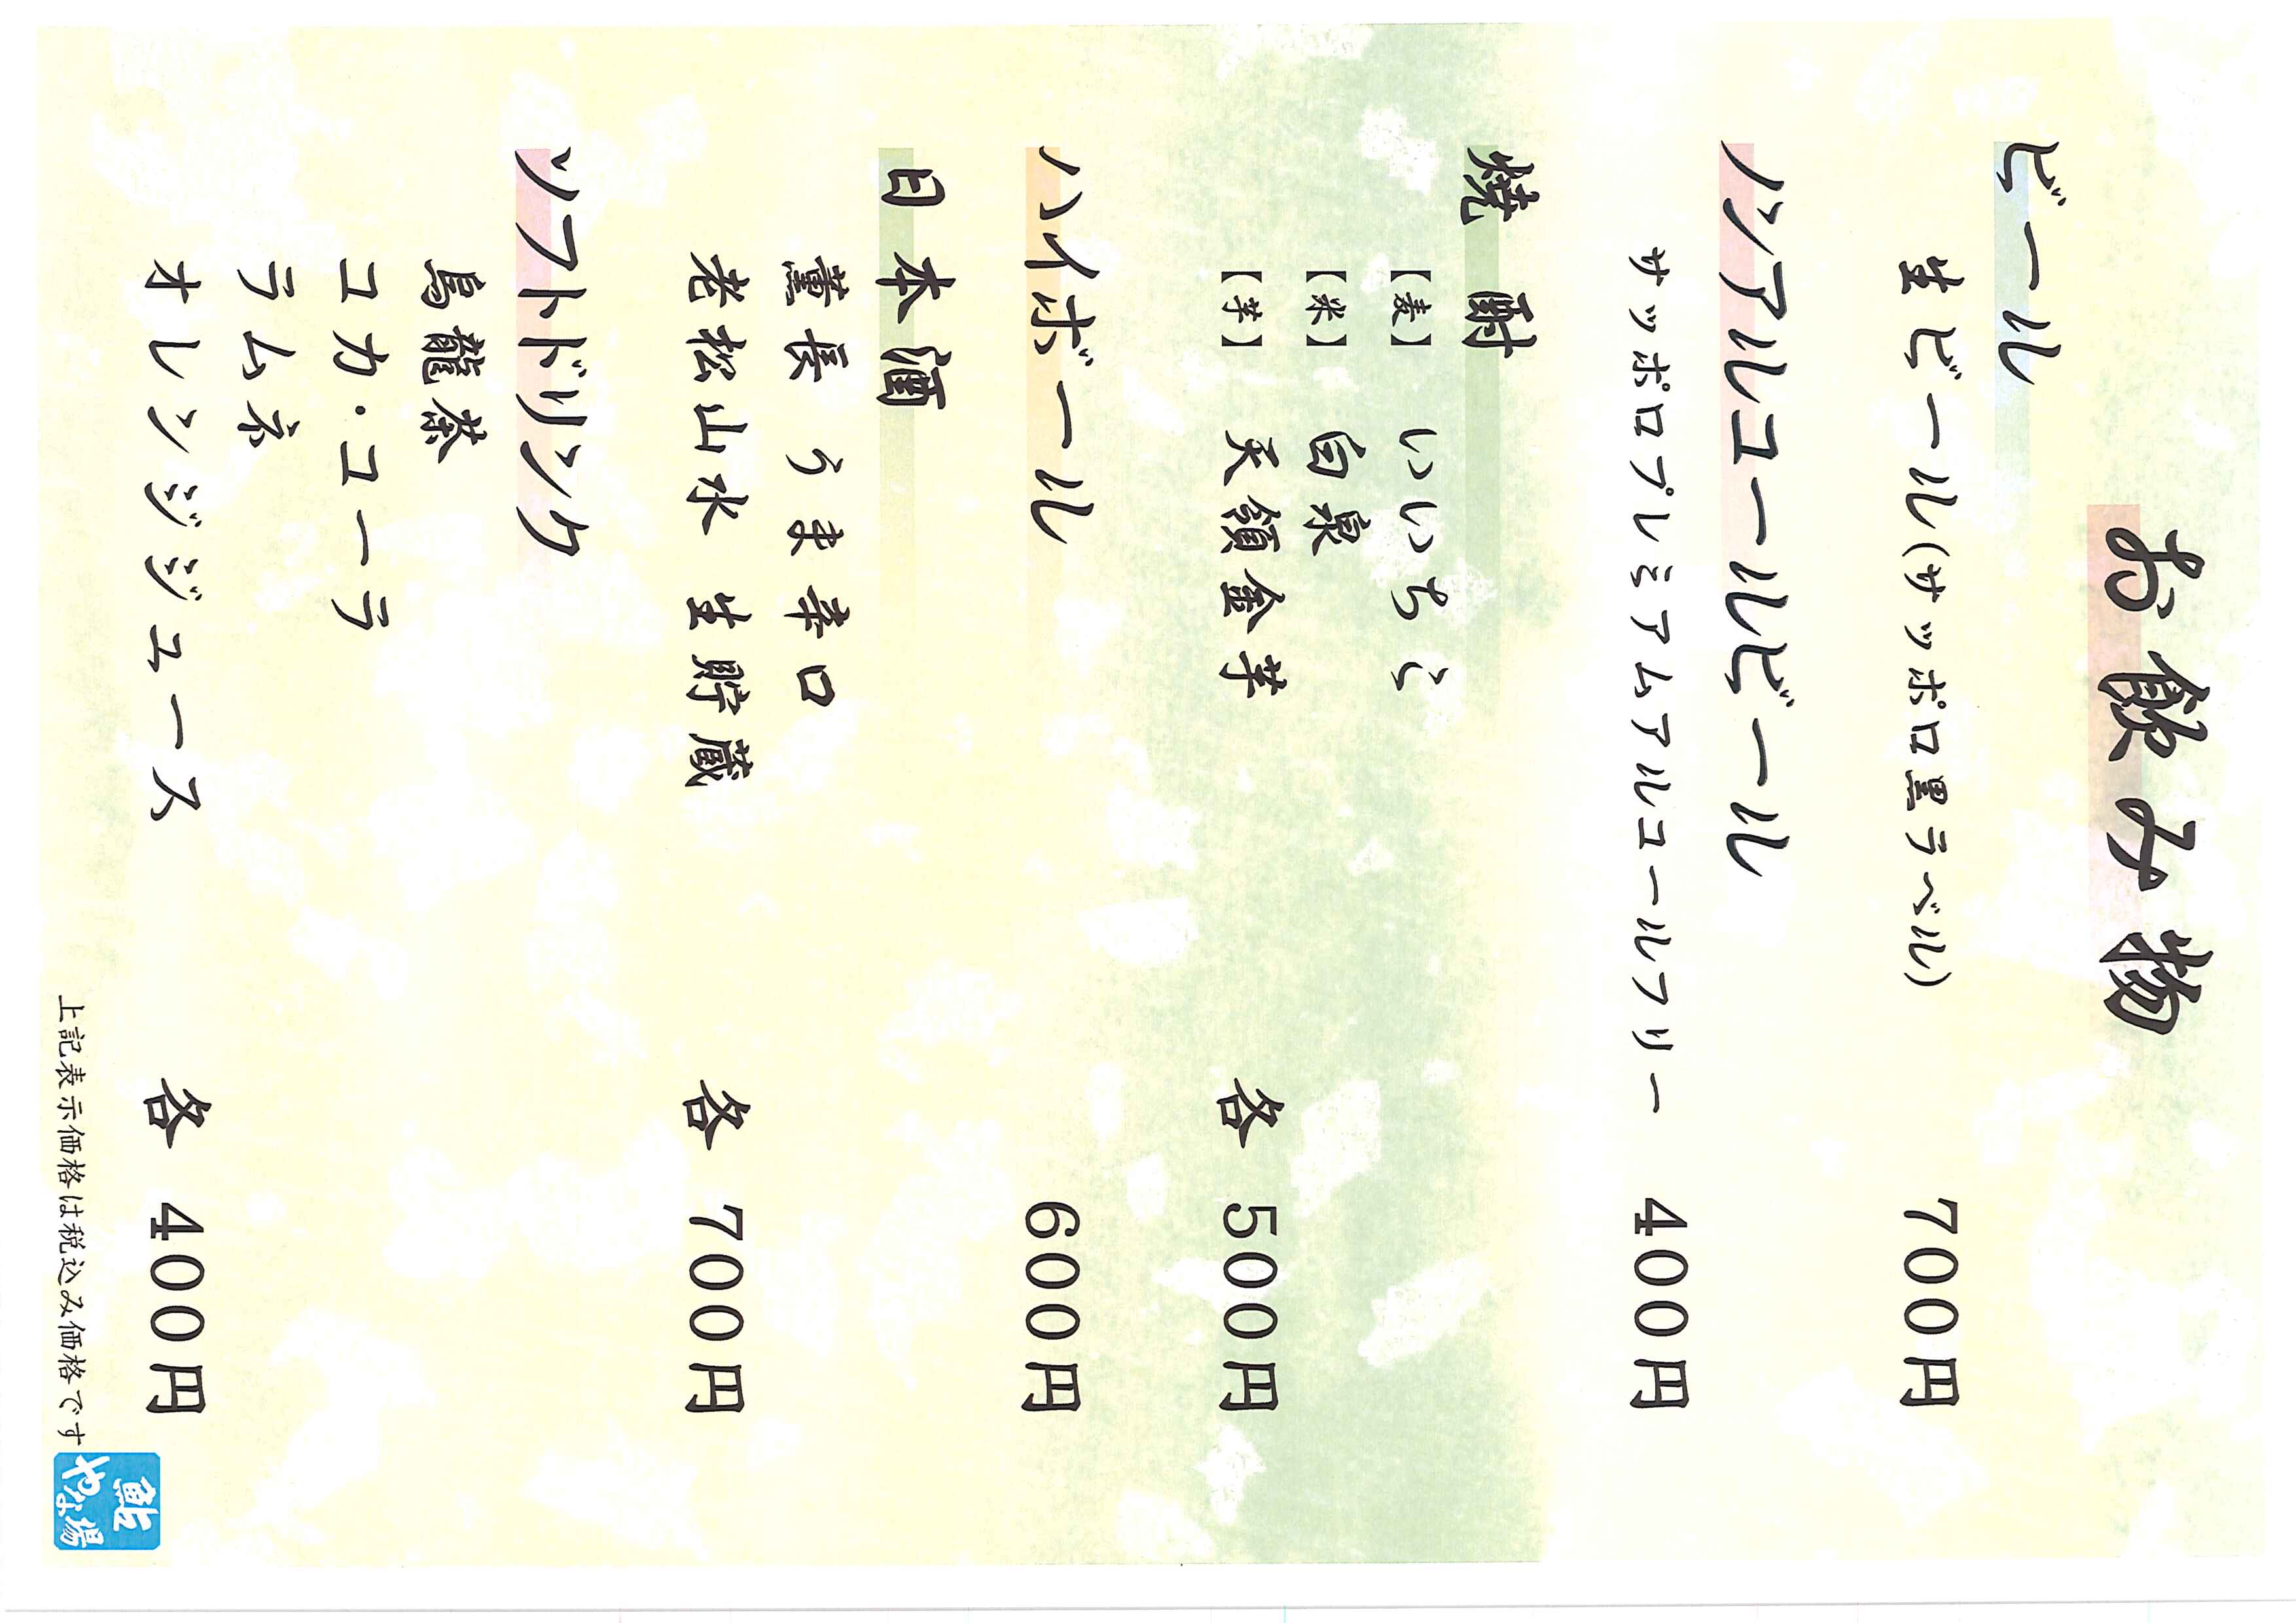 お飲み物
ビール
生ビール(サッポロ黒ラベル) 700円
ノンアルコールビール
サッポロプレミアムアルコールフリー 400円
焼酎
【麦】 いいちこ
【米】 白泉
【芋】 天領金芋 各 500円
ハイボール 600円
日本酒
薫長 うま辛口
老松山水 生貯蔵 各 700円
ソフトドリンク
烏龍茶
コカ・コーラ
ラムネ
オレンジジュース 各 400円
上記表示価格は税込み価格です
鮎
やな場